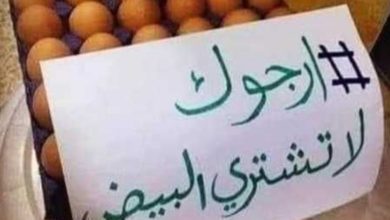 #ارجوك
لا تشتري البيض